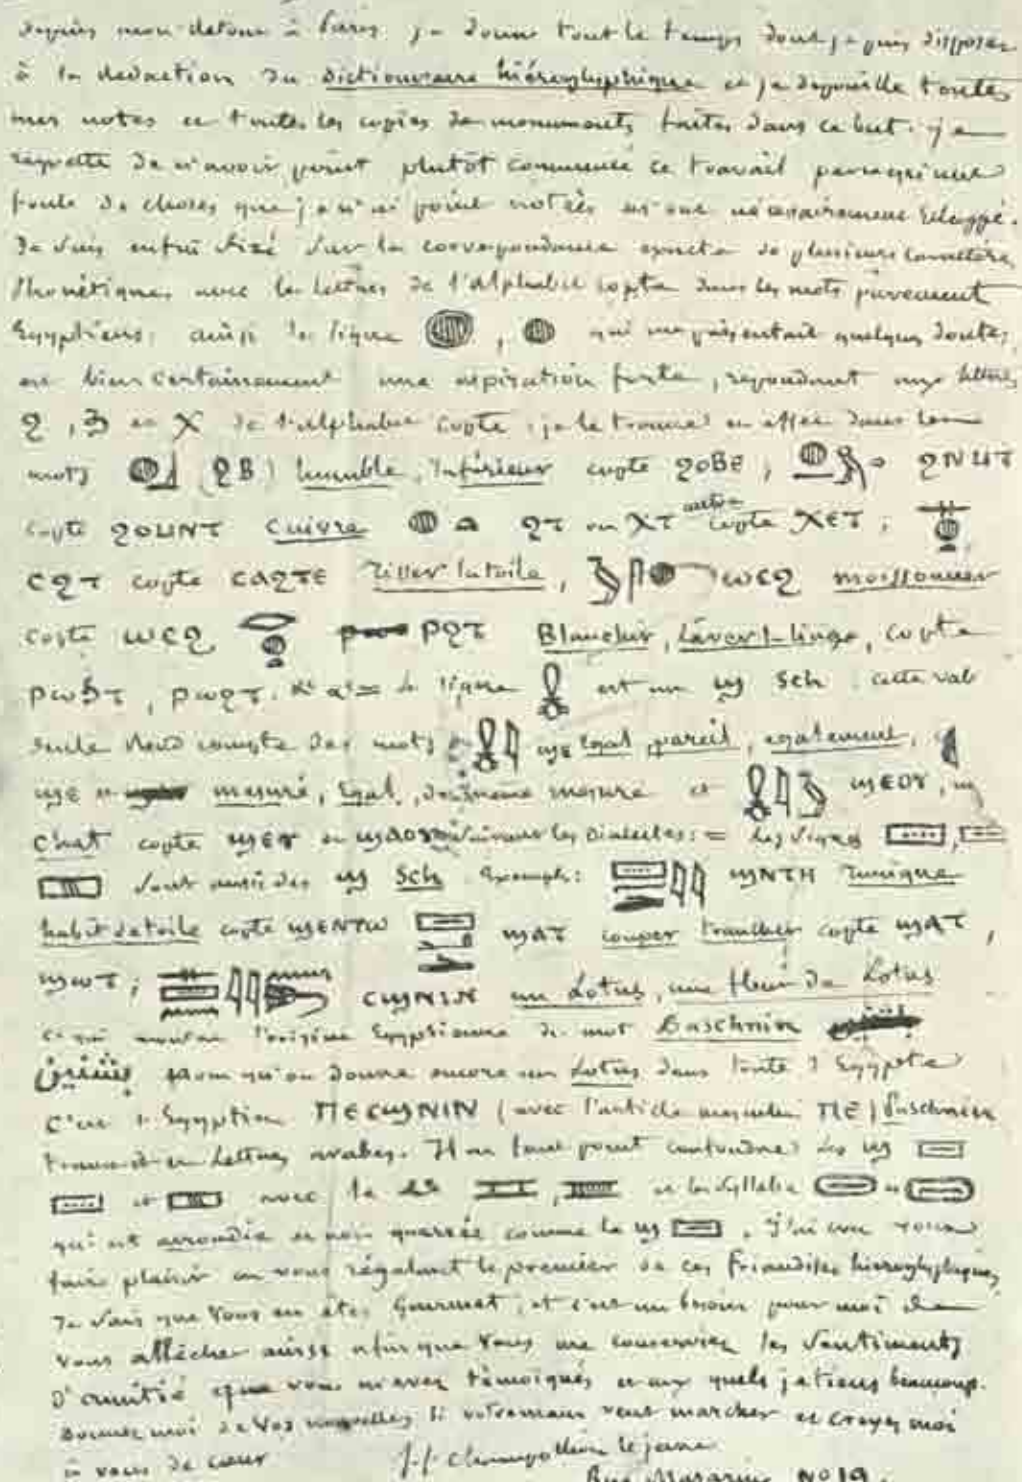 depuis mon retour à Paris je donne tout le temps dont je puis disposer
à la redaction du dictionnaire hiéroglyphique et je depouille toutes
mes notes et toutes les copies de monuments faites dans ce but. je
regrette de n'avoir point plutôt commencé ce travail parcequ'une
foule de choses que je n'ai point notées m'ont nécessairement échappé.
Je suis enfin fixé sur la correspondance exacte de plusieurs caractères
Phonétiques avec les lettres de l'alphabet copte dans les mots purement
Egyptiens: ainsi le signe , qui me présentait quelques doutes,
est bien certainement une aspiration forte, repondant aux lettres
Ϩ, Ϧ et Ⲭ de l'alphabet copte; je le trouve en effet dans les
mots (ϨⲂ) humble, Inférieur copte ϨⲞⲂⲈ,
copte ϨⲞⲘⲚⲦ Cuivre ϨⲦ ou ⲬⲦ copte ⲬⲈⲦ;
ⲤϨⲦ copte ⲤⲀϨⲦⲈ Tisser la toile, ⲰⲤϨ moissonner
copte ⲰⲤϨ ⲢϨⲦ Blanchir, Laver le linge, copte
ⲣⲱϧⲧ, ⲣⲱϩⲧ. le signe est un ϣ Sch. cette val
seule rend compte des mots ϣⲉ Egal, pareil, egalement,
ϣⲉ mesuré, Egal, de même mesure et ϣⲉⲟⲩ, un
Chat copte suivant les Dialectes: = les signes
sont aussi des ϣ Sch Exemple: ϣⲛⲧⲏ Tunique
habit de toile copte ϣⲉⲛⲧⲱ ϣⲁⲧ couper trancher copte ϣⲁⲧ,
ϣⲱⲧ; ⲥϣⲛⲓⲛ un Lotus, une fleur de Lotus
ce qui montre l'origine Egyptienne du mot Baschnin
بشنين Nom qu'on donne encore au Lotus dans toute l'Egypte
c'est l'Egyptien ⲠⲈⲤϢⲚⲒⲚ (avec l'article masculin ⲠⲈ)
transcrit en Lettres arabes. Il ne faut point confondre les ϣ
et avec le et la syllabe
qui est arrondie et non quarrée comme le ϣ. J'ai cru vous
faire plaisir en vous régalant le premier de ces friandises hieroglyphiques,
Je sais que vous en êtes Gourmet, et c'est un besoin pour moi de
vous allécher ainsi afin que vous me conserviez les sentiments
d'amitié que vous m'avez témoignés et aux quels je tiens beaucoup.
donnez moi de vos nouvelles si votre main veut marcher et croyez moi
à vous de cœur J.f. Champollion le jeune
Rue Mazarine No 19.